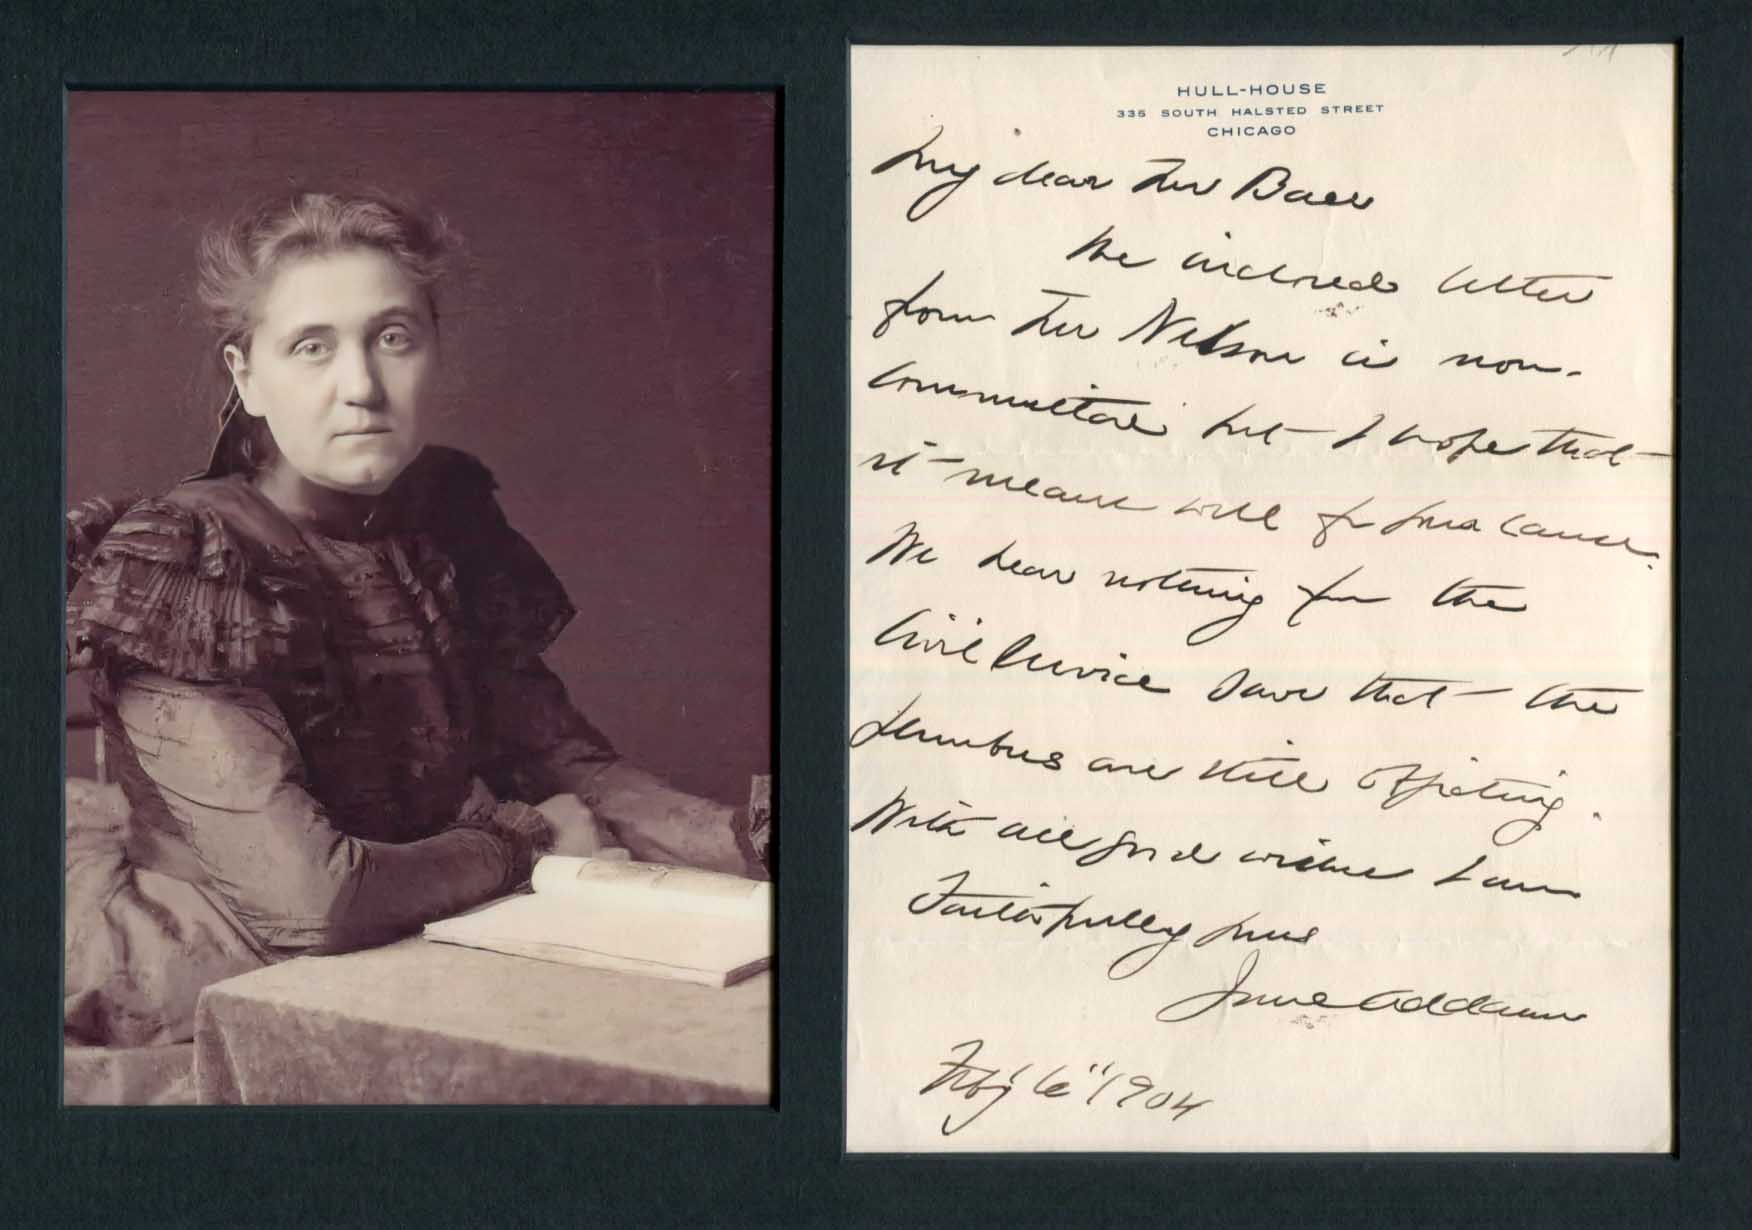 HULL-HOUSE
335 SOUTH HALSTED STREET
CHICAGO
My dear Mr Baer
The inclosed letter
from Mr Nelson is non-
committal but I hope that
it means well for your cause.
We hear nothing from the
Civil Service save that the
members are still objecting.
With all good wishes I am
Faithfully yours
Jane Addams
Feby 6" 1904